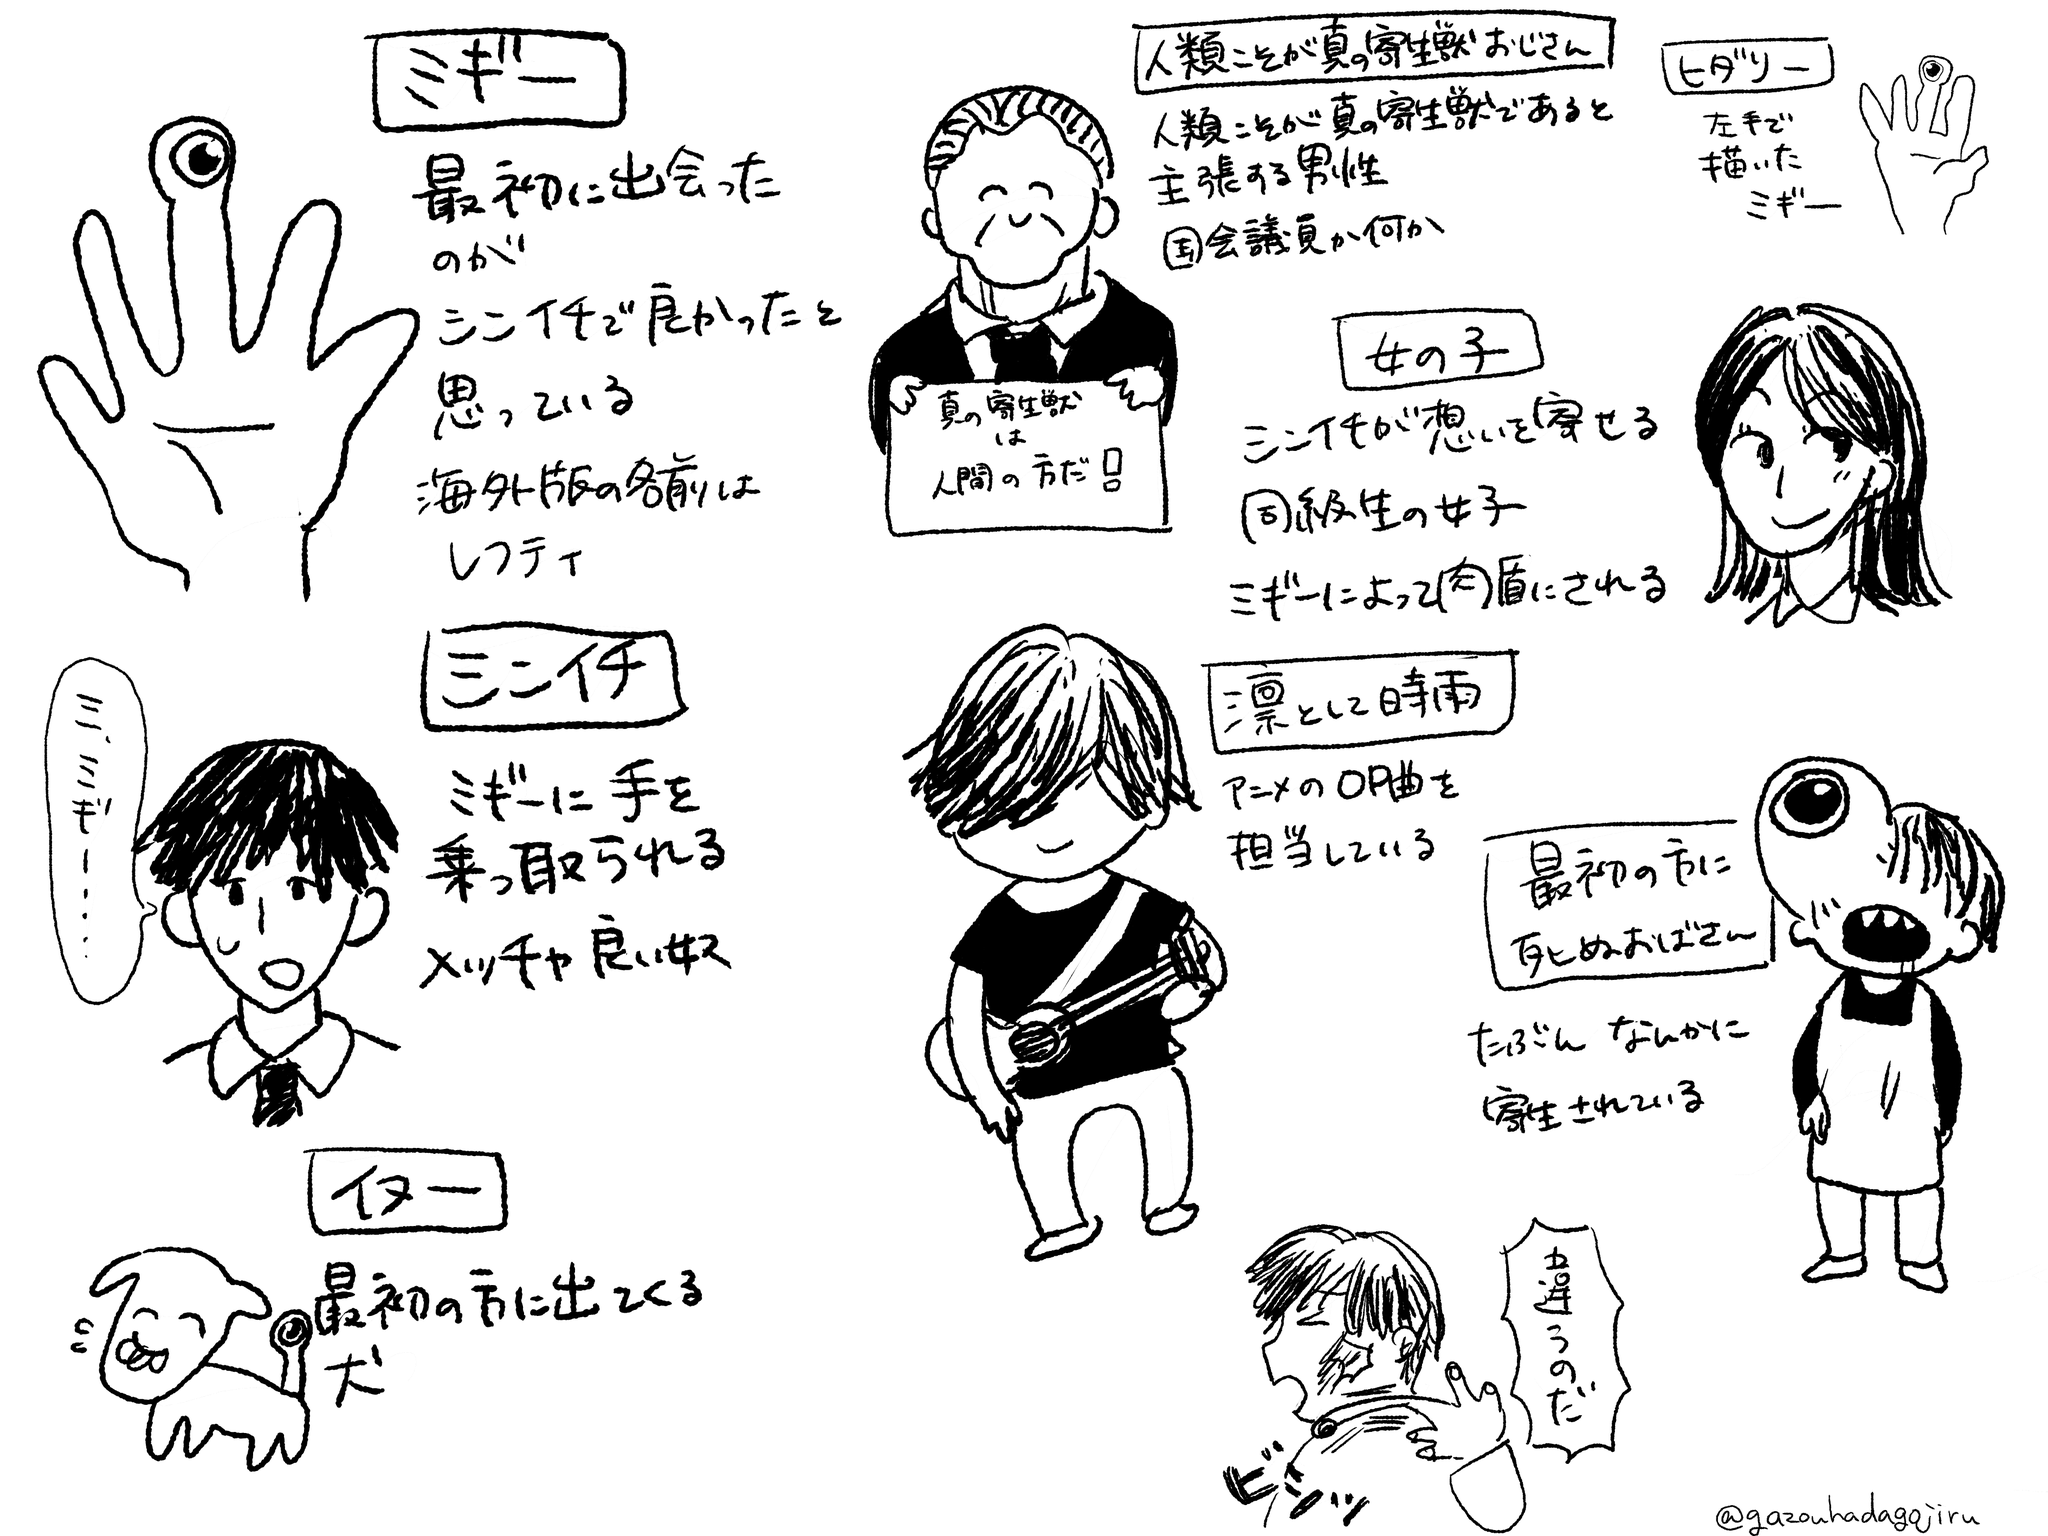 ミギー
最初に出会った
のが
シンイチで良かったと
思っている
海外版の名前は
レフティ
シンイチ
ミ、ミギー・・・・
ミギーに手を
乗っ取られる
メッチャ良い奴
イヌー
最初の方に出てくる
犬
人類こそが真の寄生獣おじさん
人類こそが真の寄生獣であると
主張する男性
国会議員か何か
真の寄生獣
は
人間の方だ!!
ヒダリー
左手で
描いた
ミギー
女の子
シンイチが想いを寄せる
同級生の女子
ミギーによって肉盾にされる
凛として時雨
アニメのOP曲を
担当している
最初の方に
死ぬおばさん
たぶんなんかに
寄生されている
違うのだ
ビシッ
@gazouhadagajiru